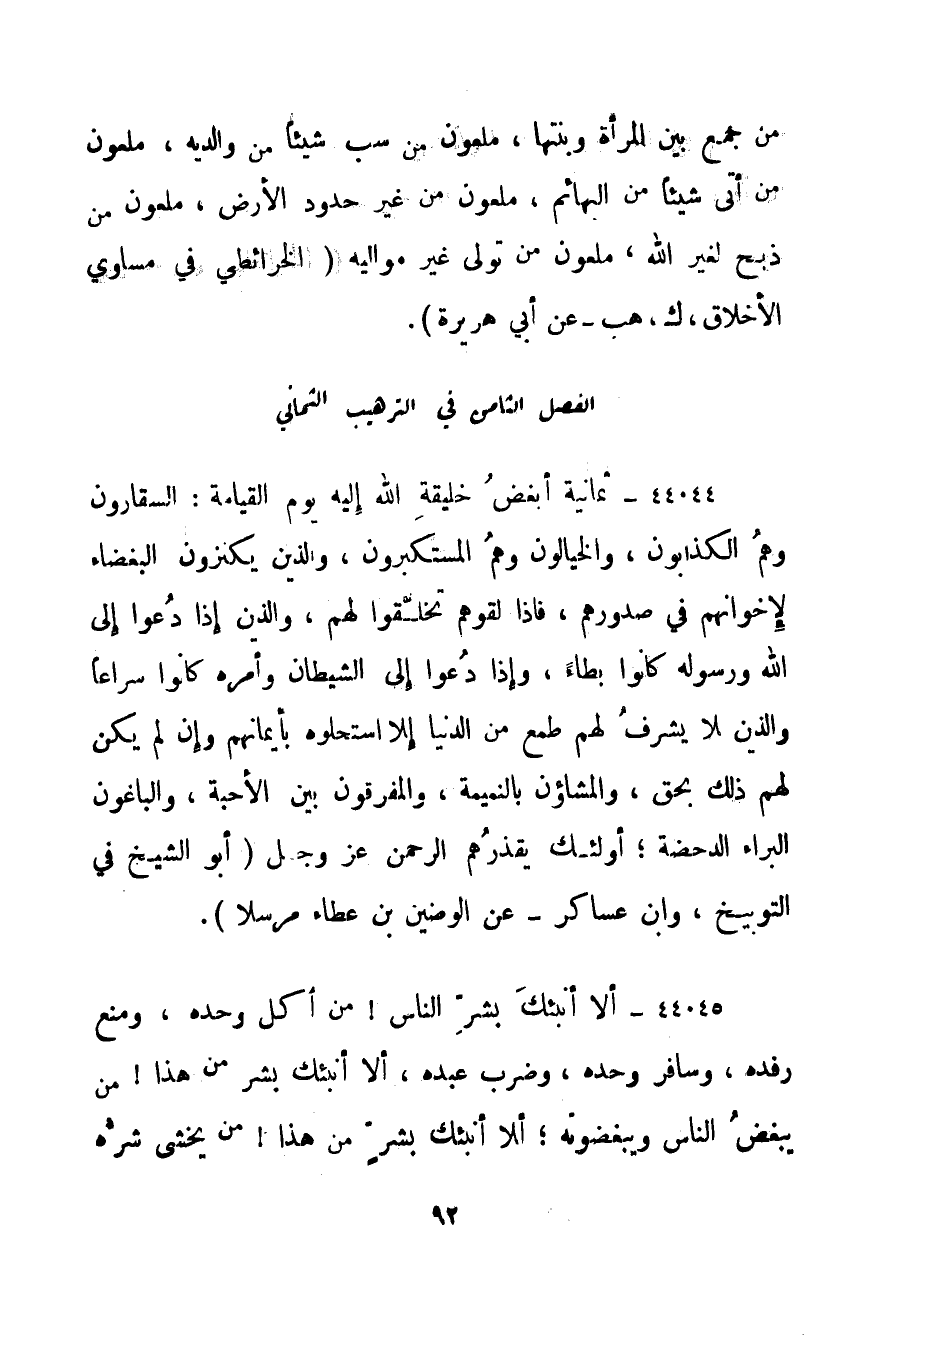 من جمع بين المرأة وبنتها ، ملعون من سب شيئاً من والديه ، ملعون
من أتى شيئاً من البهائم ، ملعون من غير حدود الأرض ، ملعون من
ذبح لغير الله ، ملعون من تولى غير مواليه ( الخرائطي في مساوي
الأخلاق ، ك ، هب ـ عن أبي هريرة ) .
الفصل الثامن في الترهيب الثماني
٤٤٠٤٤ ـ ثمانية أبغضُ خليقةِ الله إليه يوم القيامة : السقارون
وهمُ الكذابون ، والخيالون وهمُ المستكبرون ، والذين يكنزون البغضاء
لإخوانهم في صدورهم ، فاذا لقوهم تخلّقوا لهم ، والذين إذا دُعوا إلى
الله ورسوله كانوا بطاءً ، وإذا دُعوا إلى الشيطان وأمره كانوا سراعاً
والذين لا يشرفُ لهم طمع من الدنيا إلا استحلوه بأيمانهم وإن لم يكن
لهم ذلك بحق ، والمشاؤن بالنميمة ، والمفرقون بين الأحبة ، والباغون
البراء الدحضة ؛ أولئك يقذرُهم الرحمن عز وجل ( أبو الشيخ في
التوبيخ ، وابن عساكر ـ عن الوضين بن عطاء مرسلا ) .
٤٤٠٤٥ ـ ألا أنبئكَ بشرِّ الناس ! من أكل وحده ، ومنع
رفده ، وسافر وحده ، وضرب عبده ، ألا أنبئك بشر من هذا ! من
يبغضُ الناس ويبغضونه ؛ ألا أنبئك بشرٍّ من هذا ! من يخشى شرُّه
٩٢